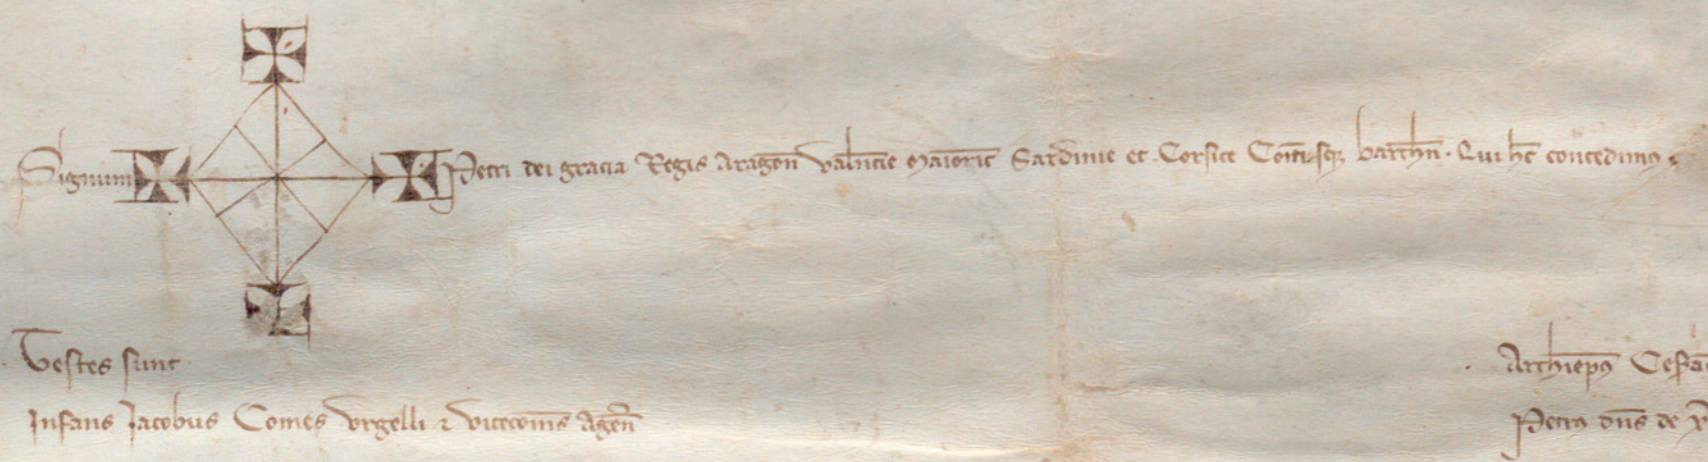 Signum Petri dei gracia Regis Aragon̄ Valn̄cie Maioric̄ Sardinie et Corsice Comit̄sq̄ barchn̄. Qui hec̄ concedimꝰ
Testes sunt
Archiep̄s Cesra
Infans Jacobus Comes Urgelli ⁊ vicecom̄s Agen̄
Petrꝰ dn̄s de